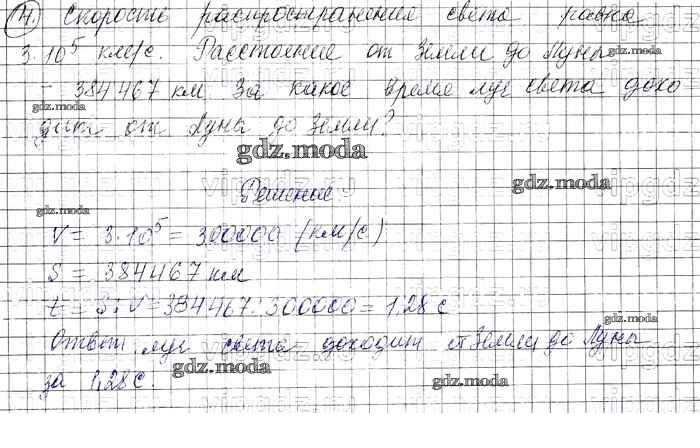 4. Скорость распространения света равна
3·10⁵ км/с. Расстояние от Земли до Луны
- 384 467 км. За какое время луч света дохо
gdz.moda
дит от Луны до Земли?
gdz.moda
gdz.moda
Решение
gdz.moda
V = 3·10⁵ = 300000 (км/с)
S = 384467 км
t = S : V = 384467 : 300000 = 1,28 с
gdz.moda
Ответ: луч света доходит от Земли до Луны
gdz.moda
за 1,28 с.
gdz.moda